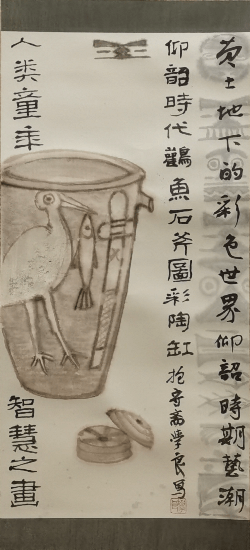 黄土地下的彩色世界仰韶時期藝潮
仰韶時代鸛魚石斧圖彩陶缸
抱守齋學良写
人类童年
智慧之畫